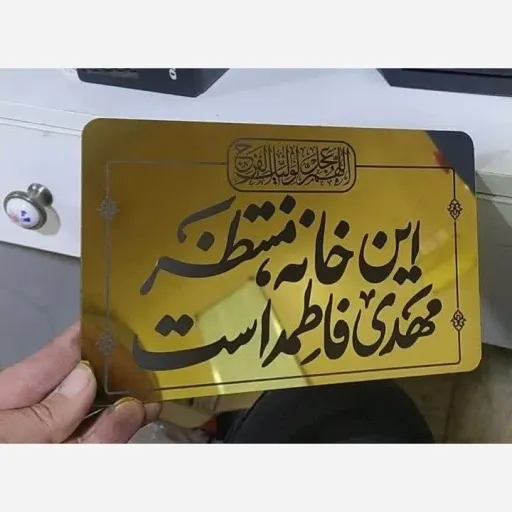 اللهم عجل لولیک الفرج
این خانه، منتظر
مهدی فاطمه است